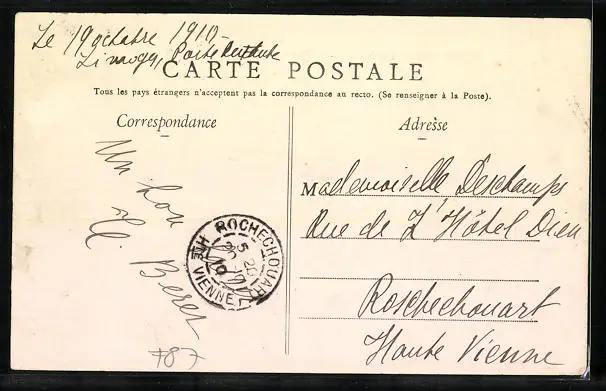 Le 19 octobre 1910
Limoges, Poste
CARTE POSTALE
Tous les pays étrangers n'acceptent pas la correspondance au recto. (Se renseigner à la Poste).
Correspondance
Adresse
Un bon
Mademoiselle Deschamps
Rue de L'Hôtel Dieu
Roschechouart
Haute Vienne
ROCHECHOUART
HTE VIENNE
787